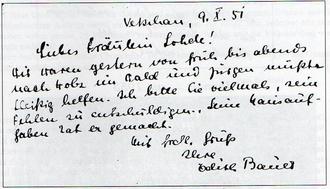 Vetschau, 9. X. 51
Liebes Fräulein Lohde!
Wir waren gestern von früh bis abends
nach Holz im Wald und Jürgen mußte
fleißig helfen. Ich bitte Sie vielmals, sein
Fehlen zu entschuldigen. Seine Hausauf-
gaben hat er gemacht.
Mit frdl. Gruß
Ihre
Edith Bauer